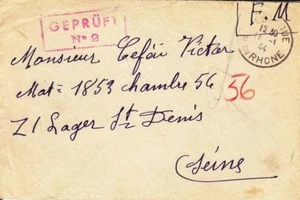 GEPRÜFT
Nº 2
F. M
12 30
RHONE
Monsieur Cefái Victor
Mat= 1853 chambre 56
56
ZI Lager St Denis
Seine